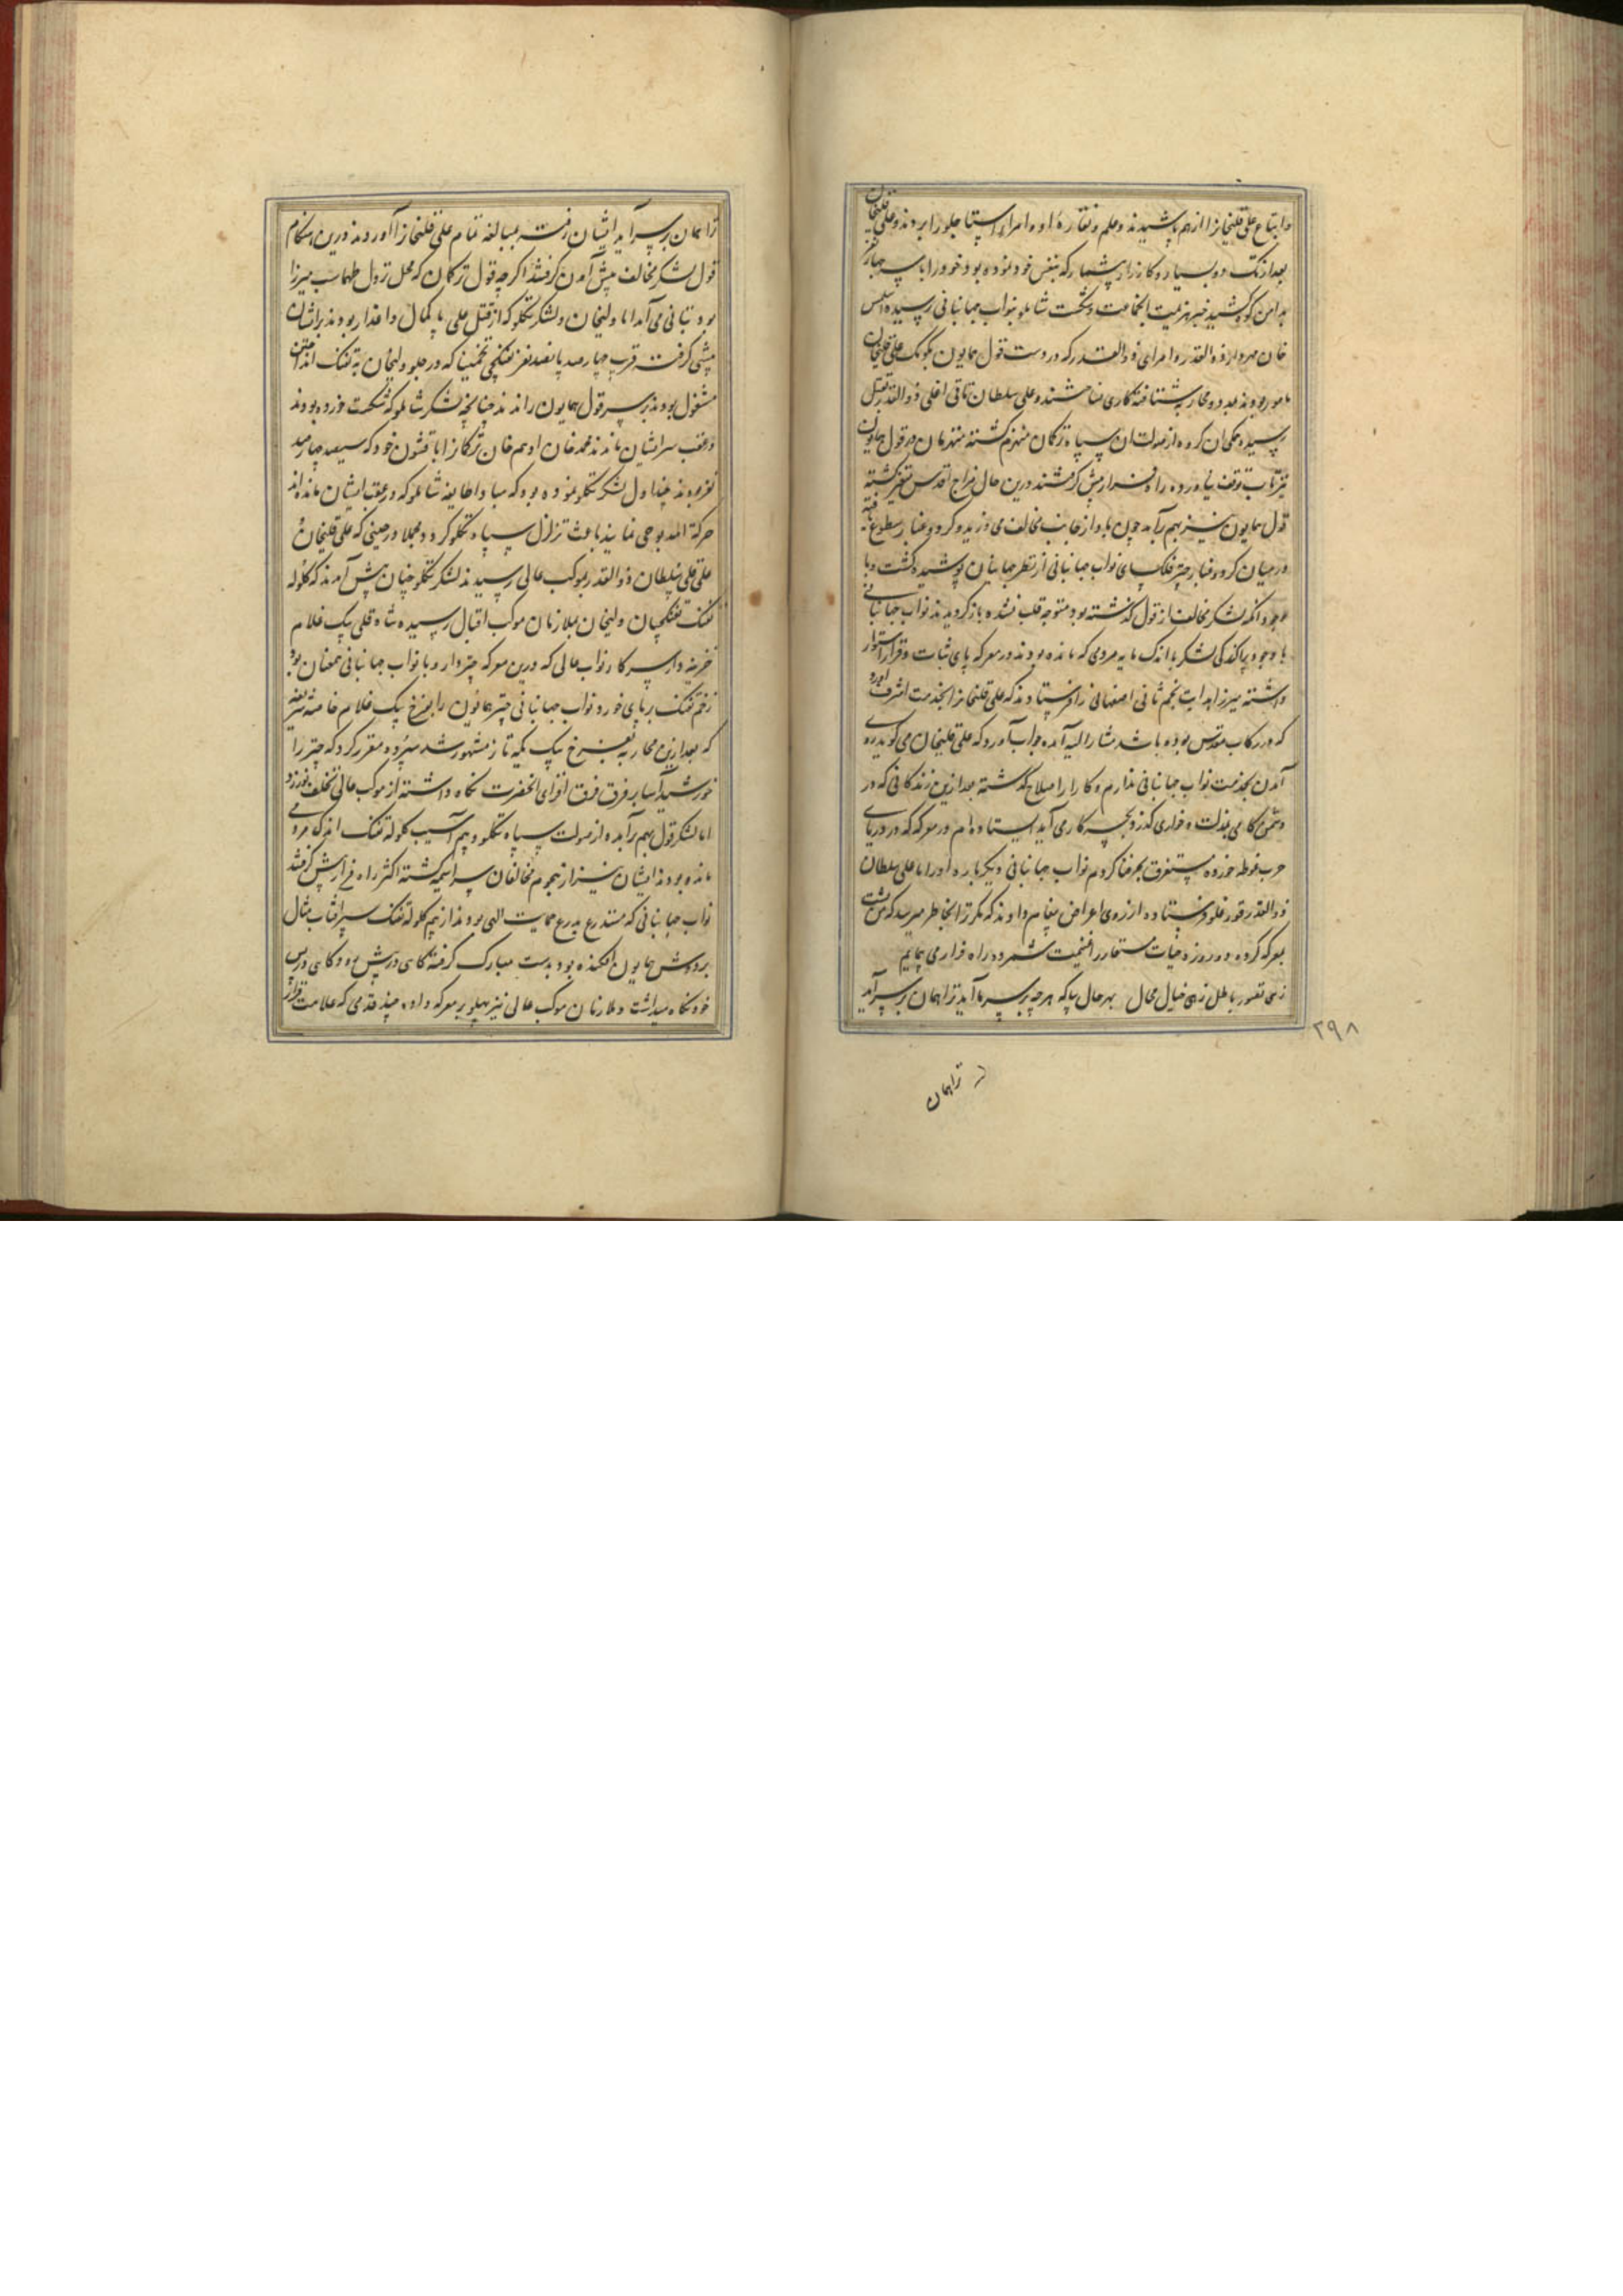 و اتباع علی قلیخانرا از هم پاشیدند و علم و نقاره او و امراء استاجلو را بردند و علی قلیخان
بعد از تک و دو بسیار و کارزار بیشمار که بنفس خود نموده بود خود را با سه چهار نفر
بدامن کوه کشید خبر هزیمت و شکست شاملو بنواب جهانبانی رسیده
خان مهردار ذوالقدر و امرای ذوالقدر که در دست قول همایون بکومک علی قلیخان
مامور بودند بمدد و محاربه شتافته کاری نساختند و علی سلطان تاتی اغلی ذوالقدر بقتل
رسیده همکی آن کروه از صولت آن سپاه ترکمان منهزم کشته منهزمان در قول همایون
نیز تاب توقف نیاورده راه فرار پیش کرفتند درین حال مزاج اقدس متغیر کشته
قول همایون نیز بهم برآمد چون باد از جانب مخالف می وزید و کرد و غبار سطوع یافته
در میان کرد و غبار چتر فلکسای نواب جهانبانی از نظر جهانیان پوشیده کشت و با
وجود آنکه لشکر مخالف از قول کذشته بود متوجه قلب نشده باز کردیدند نواب جهانبانی
با وجود پراکندکی لشکر با اندک مایه مردمی که مانده بودند در معرکه پای ثبات و قرار استوار
داشته میرزا هدایت نجم ثانی اصفهانی را فرستادند که علی قلیخانرا بخدمت اشرف آورد
که در رکاب مقدس بوده باشد مشارالیه آمده جواب آورد که علی قلیخان می کوید روی
آمدن بخدمت نواب جهانبانی ندارم و کار از اصلاح کذشته بعد ازین زندکانی که در
دشمن کامی بمذلت و خواری کذرد بچه کار می آید ایستاده ام در معرکه که در دریای
حرب غوطه خورده مستغرق بحر فنا کردم نواب جهانبانی دیکر باره او را با علی سلطان
ذوالقدر قورغلو فرستاده از روی اعراض پیغام دادند که مکر ترا بخاطر میرسد که من پشت
بمعرکه کرده دو روزه حیات مستعار را غنیمت شمرده راه فرار می پیمایم
زهی تصور باطل زهی خیال محال بهر حال بیا که هر چه بر سر ما آید ترا همان بر سر آید
۲۹۸
ترا همان
ترا همان بر سر آید ایشان رفته بمبالغه تمام علی قلیخانرا آوردند درین هنکام
قول لشکر مخالف پیش آمدن کرفتند اکرچه قول ترکمان که محل نزول طهماسب میرزا
بود بتانی می آمد اما ولیخان و لشکر تکلو که از قتل علی پاکمال داغدار بودند بر ایشان
پیشی کرفت قرب چهارصد پانصد نفر تفنکچی تخمینا که در جلو ولیخان به تفنک انداختن
مشغول بودند بر سر قول همایون راندند چنانچه لشکر شاملو که شکست خورده بودند
در عقب سر ایشان ماندند محمد خان و ادهم خان ترکمانرا با قشون خود که سیصد چهارصد
نفر بودند چنداول لشکر تکلو نموده بود که مبادا طایفه شاملو که در عقب ایشان مانده اند
حرکة المذبوحی نمایند باعث تزلزل سپاه تکلو کردد مجملا در حینی که علی قلیخان و
علی سلطان ذوالقدر بموکب عالی رسیدند لشکر تکلو چنان پیش آمدند که کلوله
تفنک تفنکچیان ولیخان بملازمان موکب اقبال رسیده شاه قلی بیک غلام
خزینه دار سرکار نواب عالی که درین معرکه چتردار و با نواب جهانبانی همعنان بود
زخم تفنک بر پای خورد نواب جهانبانی چتر همایون را بفرخ بیک غلام خاصه شریفه
که بعد ازین محاربه بفرخ بیک یکه تاز مشهور شد سپرده مقرر کرد که چتر را
خورشید آسا بر فرق فرقدان افرای آنحضرت نکاه داشته از موکب عالی تخلف نورزد
اما لشکر قول بهم برآمده از صولت سپاه تکلو و بیم آسیب کلوله تفنک اندک مردمی
مانده بودند ایشان نیز از هجوم مخالفان سراسیمه کشته اکثر راه فرار پیش کرفتند
نواب جهانبانی که متدرع بدرع حمایت الهی بودند از بیم کلوله تفنک سپر آفتاب مثال
بر دوش همایون افکنده بود بدست مبارک کرفته کاهی در پیش رو و کاهی در پس
خود نکاه میداشت و ملازمان موکب عالی نیز پهلو بر معرکه داده چند قدمی که علامت فرار